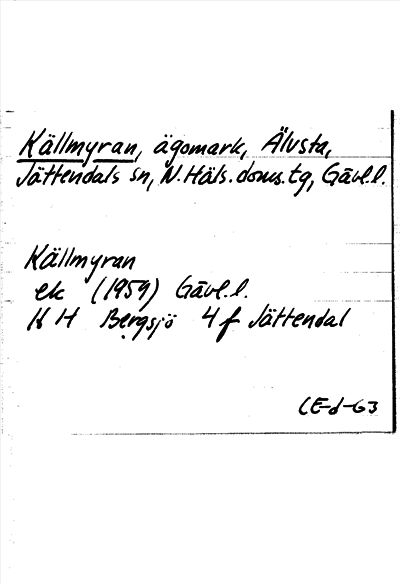 Källmyran, ägomark, Älvsta,
Jättendals sn, N. Häls. doms. tg, Gävl. l.
Källmyran
ek (1959) Gävl. l.
K H Bergsjö 4 f Jättendal
CE-d-63